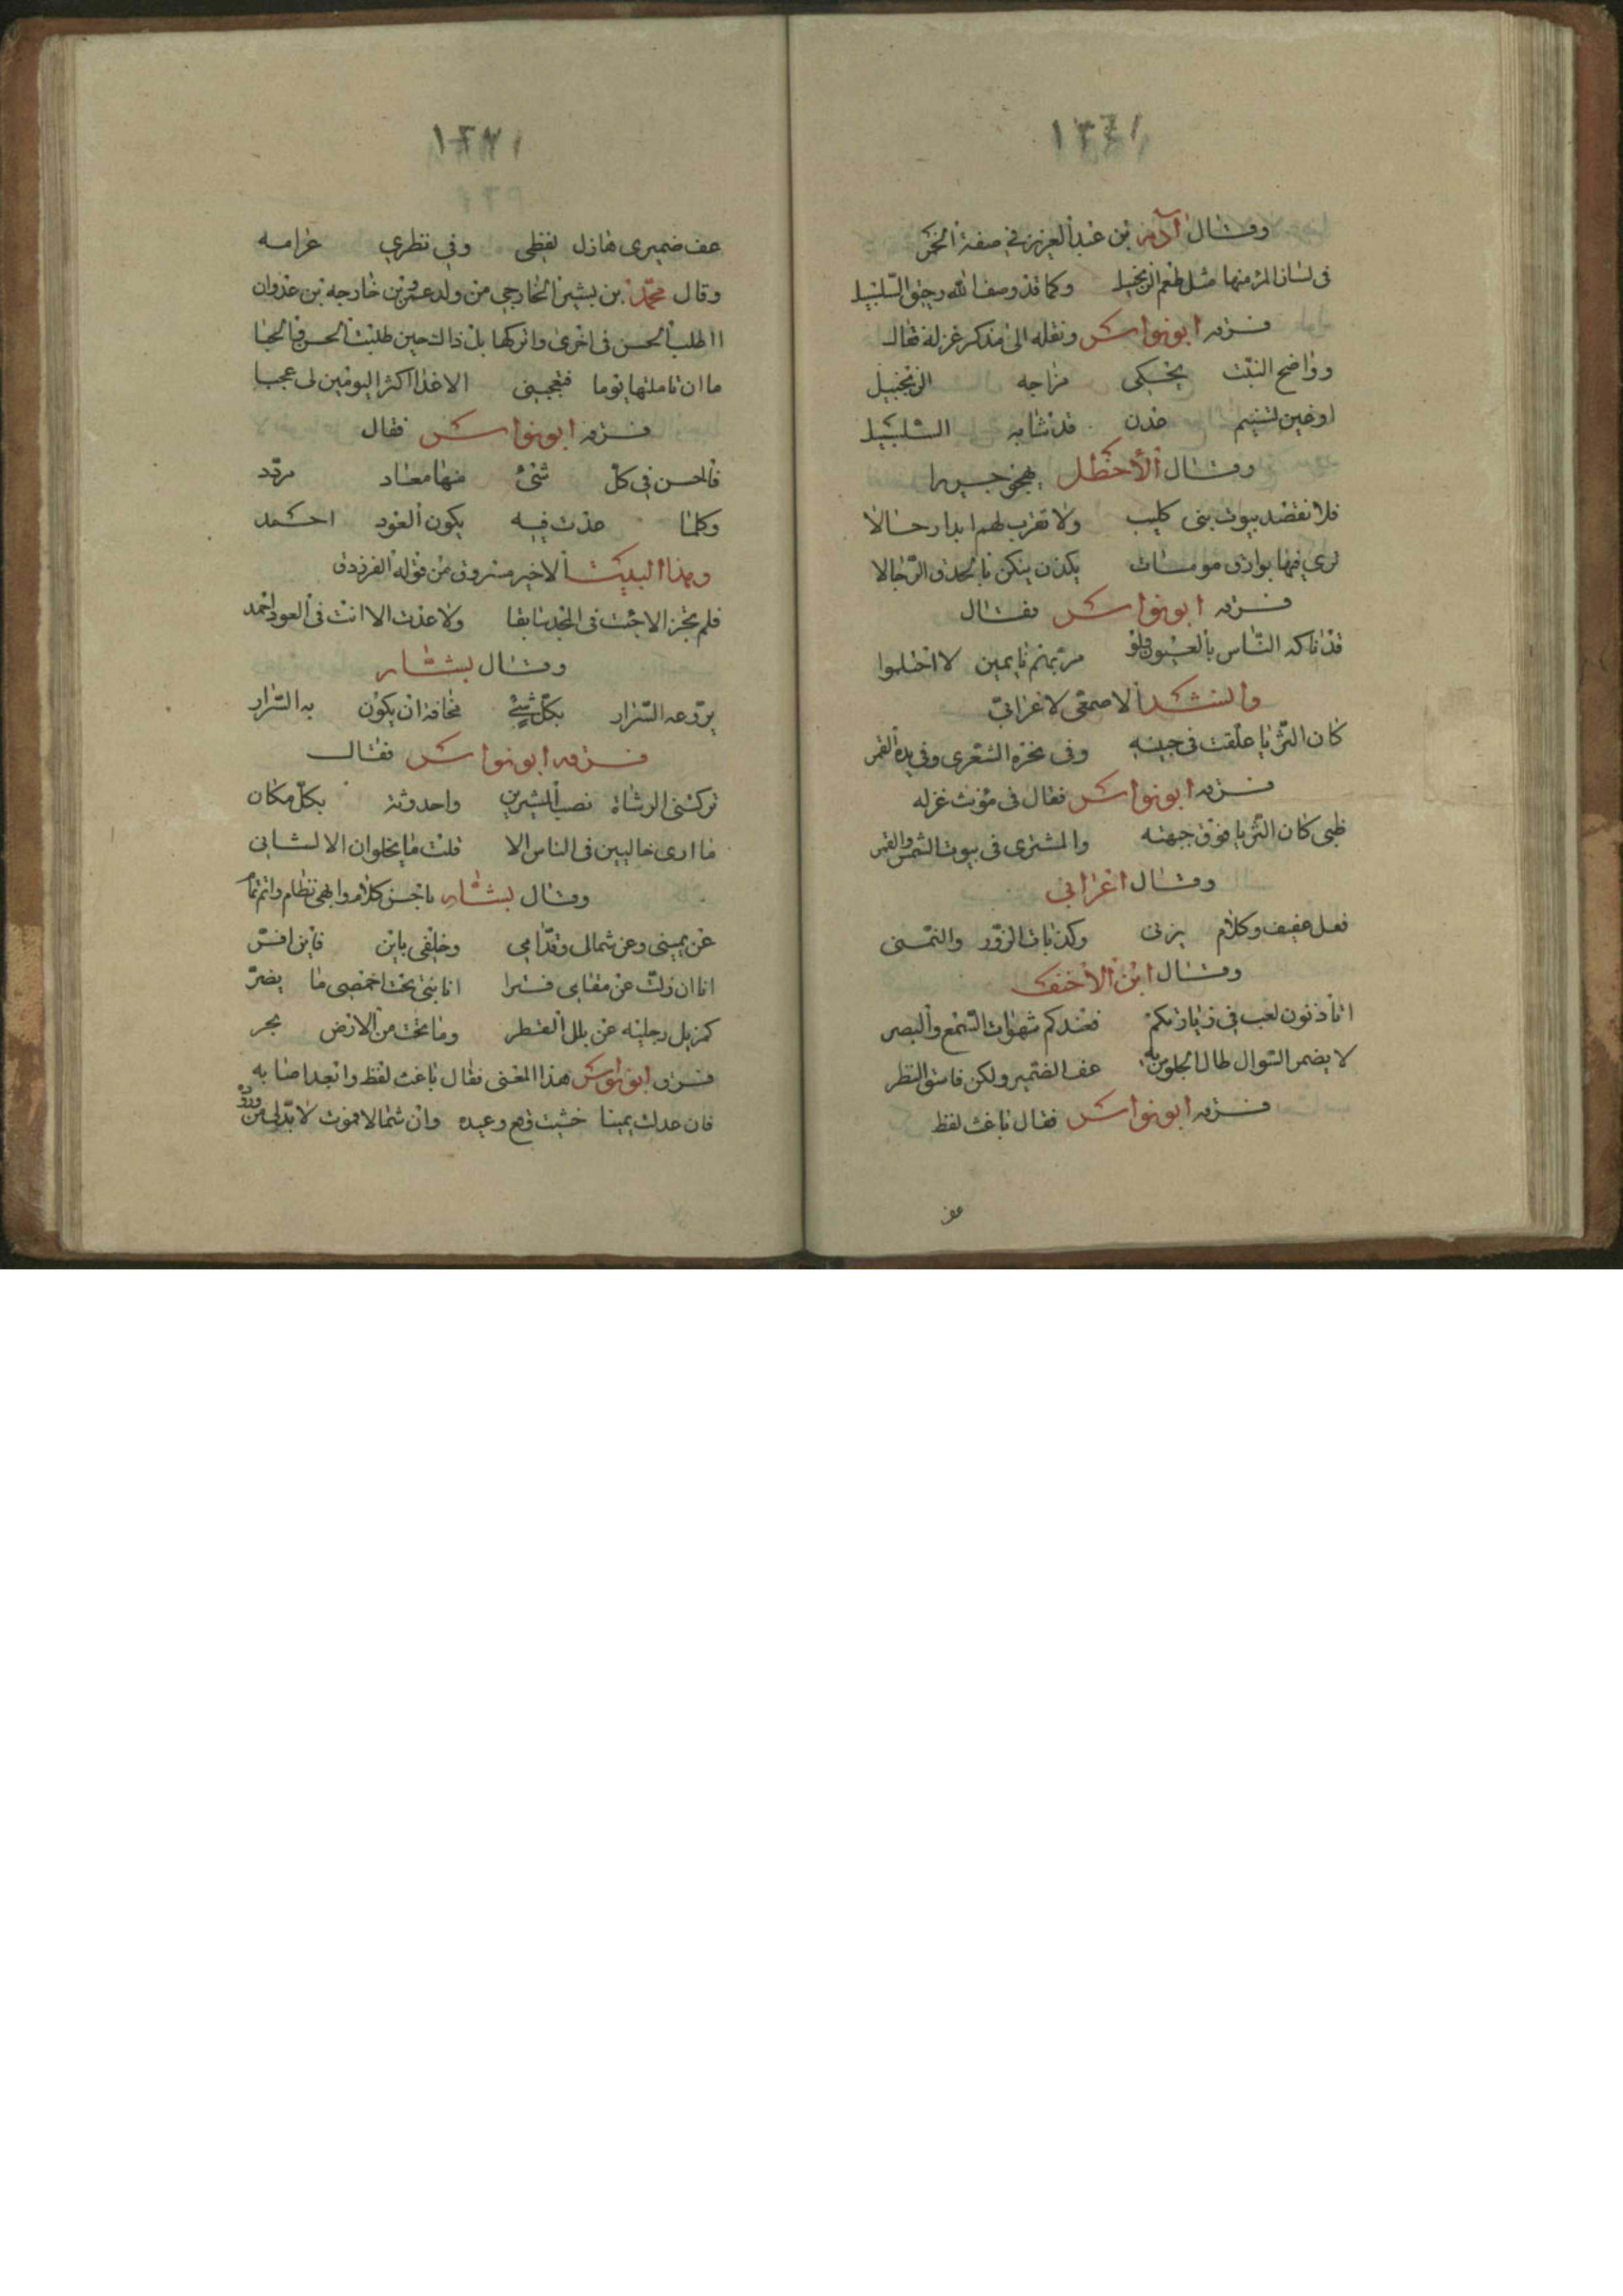 ١٣٤١
وقال آدم بن عبد العزيز في صفة الخمر
في لسان المرء منها مثل طعم الزنجبيل وكما قد وصف الله رحيق السلسبيل
فسرقه ابو نواس ونقله الى مذكر غزله فقال
وواضح النبت يحكى مزاجه الزنجبيل
او عين تسنيم عدن قد شابه السلسبيل
وقال الأخطل يهجو جريرا
فلا تقصد بيوت بنى كليب ولا تقرب لهم ابدا رحالا
ترى فيها بوارق مومسات يكدن ينكن بالحدق الرجالا
فسرقه ابو نواس فقال
قد ناكه الناس بالعيون ولو مر بهم نايمين لا احتلموا
وانشد الاصمعى لاعرابي
كان الثريا علقت فى جبينه وفى نحره الشعرى وفى يده القمر
فسرقه ابو نواس فقال فى مؤنث غزله
ظبى كان الثريا فوق جبهته والمشترى فى بيوت الشمس والقمر
وقال اعرابي
فعل عفيف وكلام يزنى وكذبات الزور والتمنى
وقال ابن الأحنف
اتاذنون لعب في زيارتكم فعندكم شهوات السمع والبصر
لا يضمر السوال طال الجلوس به عف الضمير ولكن فاسق النظر
فسرقه ابو نواس فقال باغث لفظ
عف
عف ضميرى هازل لفظى وفي نظري عرامه
وقال محمد بن بشير الخارجي من ولد عمرو بن خارجه بن عدوان
ااطلب الحسن فى اخرى واتركها بل ذالك حين طلبت الحسن فالحبا
ما ان تاملتها يوما فتعجبنى الا غدا اكثر اليومين لى عجبا
فسرقه ابو نواس فقال
فالحسن في كل شئ منها معاد مردد
وكلما عدت فيه يكون العود احمد
وهذا البيت الاخير مسروق من قوله الفرزدق
فلم تجز الا جئت فى المجد سابقا ولا عدت الا انت فى العود احمد
وقال بشار
يروعه السرار بكل شئ مخافة ان يكون به السرار
فسرقه ابو نواس فقال
تركتنى الوشاة نصب المشيرين واحدوثة بكل مكان
ما ارى خاليين فى الناس الا قلت ما يخلوان الا لشانى
وقال بشار باحسن كلام وابهى نظام واتم
عن يمينى وعن شمالى وقدامى وخلفى باين فاين افر
انا ان زلت عن مقامى فترا انا بنى تحت اخمصى ما يضر
كمزيل رجليه عن بلل القطر وما تحت من الارض بحر
فسرق ابو نواس هذا المعنى فقال باغث لفظ وابعد اصابه
فان عدلت يمينا خشيت وعيده وان شمالا فموت لا بد لى من وروده